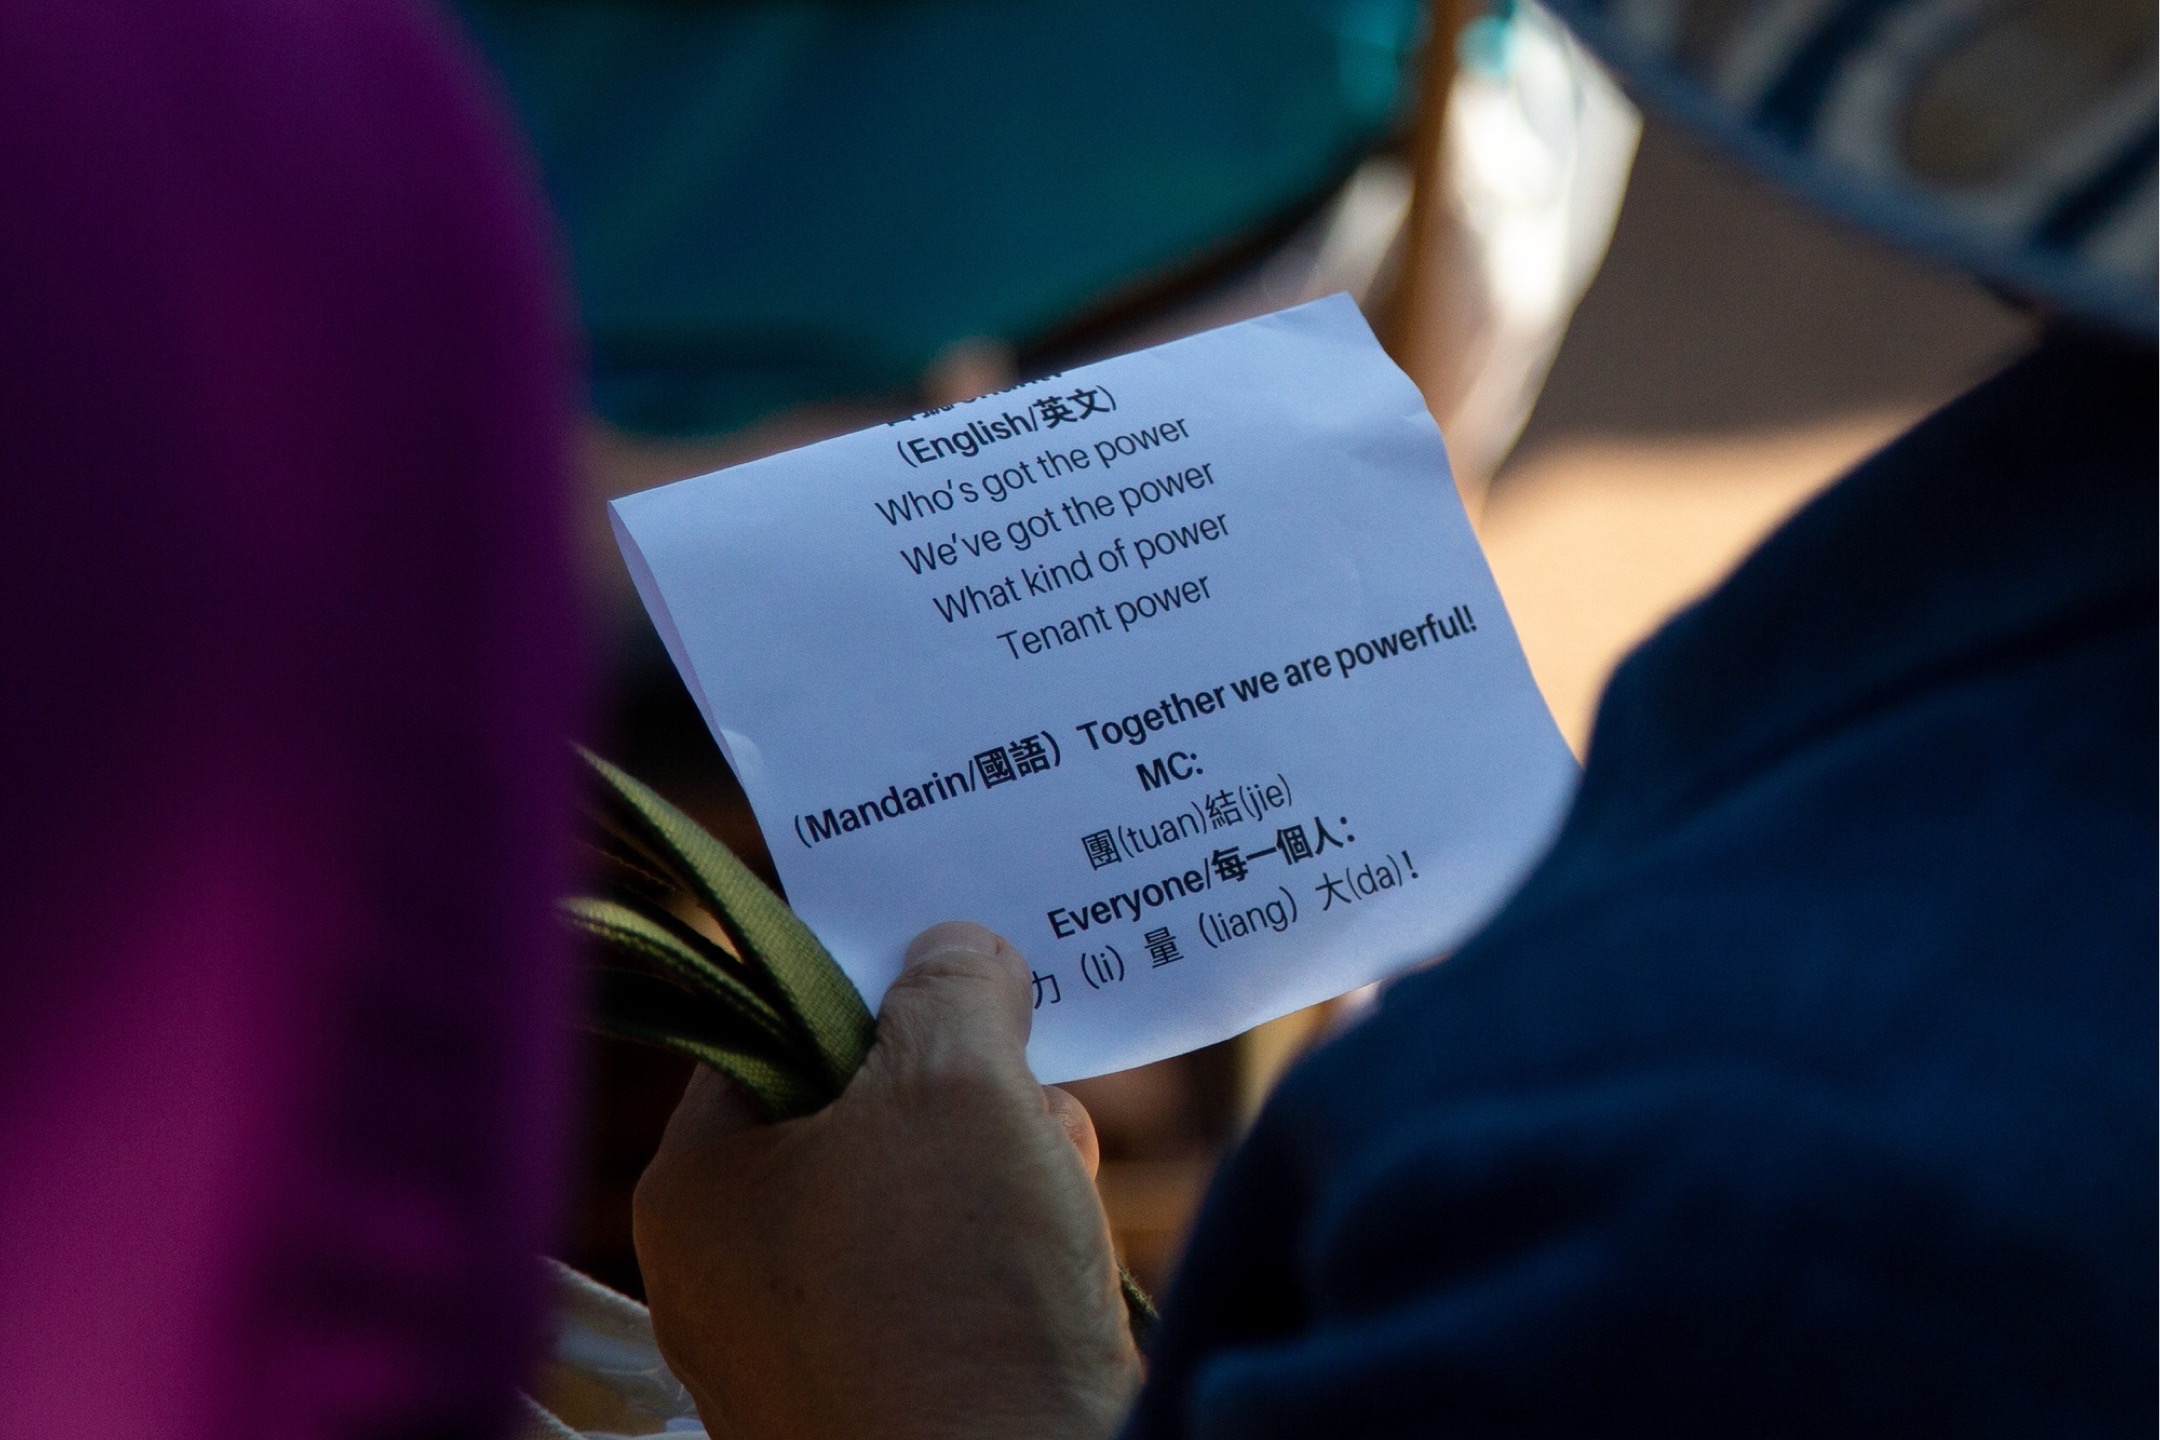 (English/英文)
Who's got the power
We've got the power
What kind of power
Tenant power
(Mandarin/國語) Together we are powerful!
MC:
團(tuan)結(jie)
Everyone/每一個人:
力 (li) 量 (liang) 大(da)!